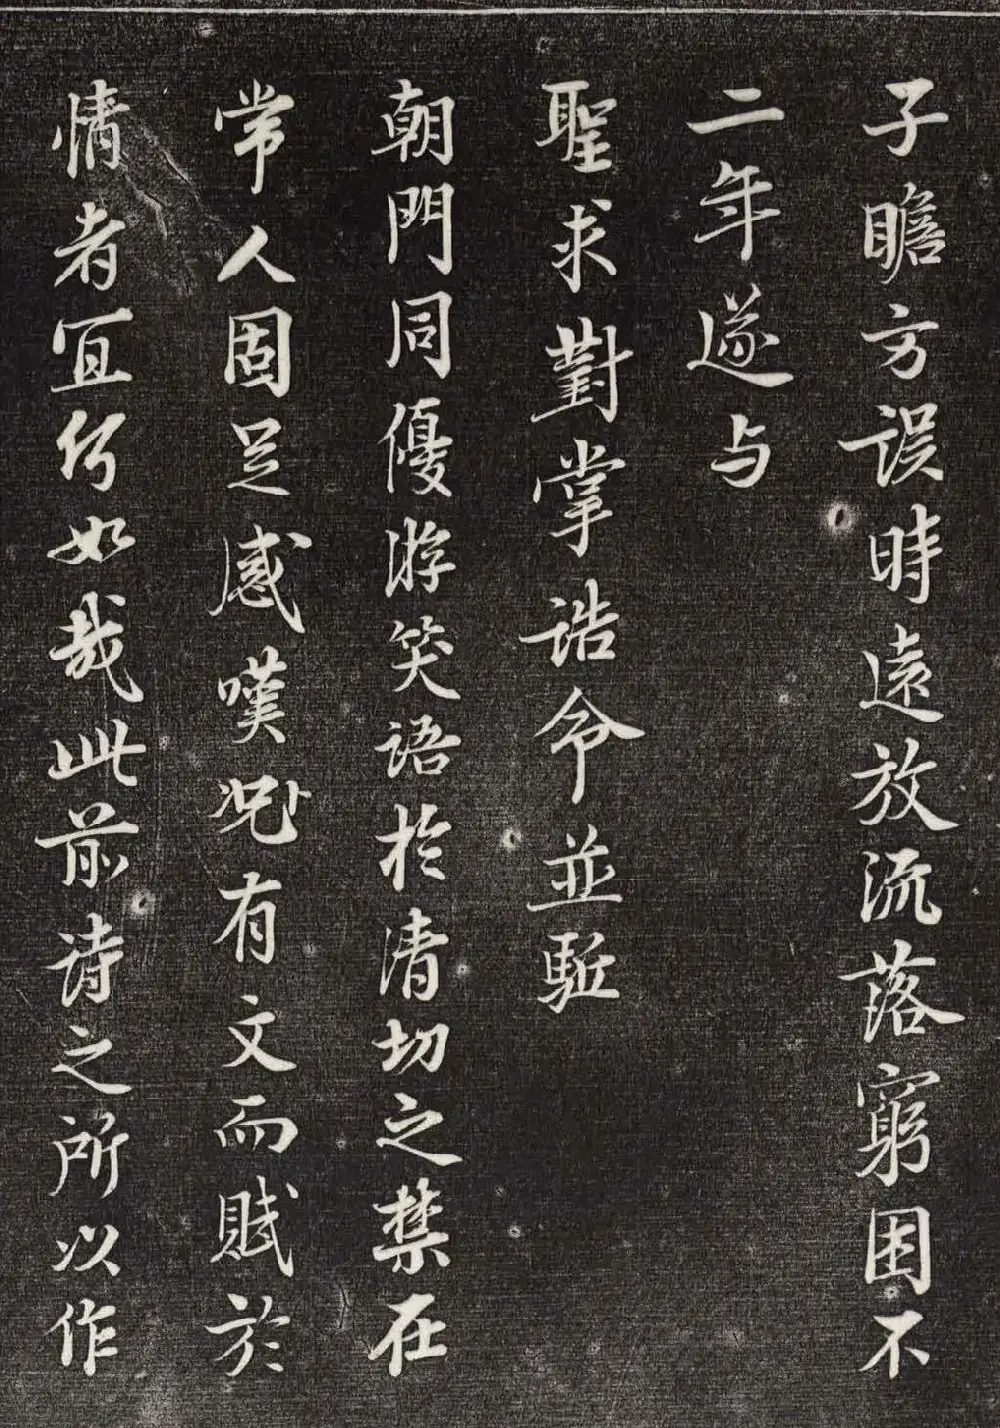 子瞻方誤時遠放流落窮困不
二年遂与
聖求對掌誥命並駈
朝門同優游笑語於清切之禁在
常人固足感嘆况有文而賦於
情者宜何如哉此前诗之所以作